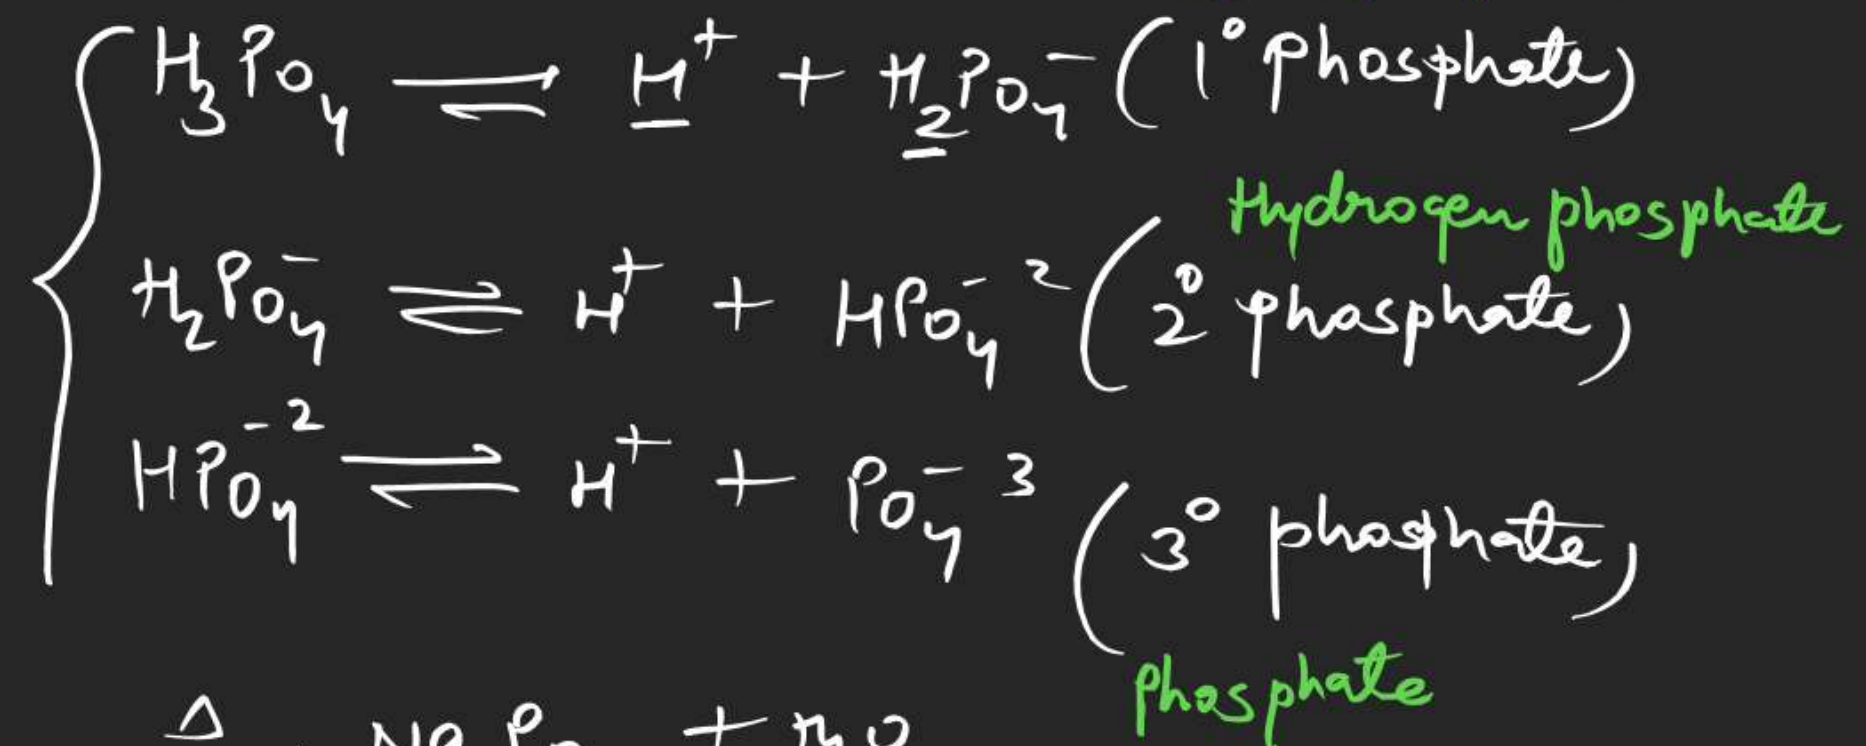 H₃PO₄ ⇌ H⁺ + H₂PO₄⁻ (1° phosphate)
Hydrogen phosphate
H₂PO₄⁻ ⇌ H⁺ + HPO₄⁻² (2° phosphate)
HPO₄⁻² ⇌ H⁺ + PO₄⁻³ (3° phosphate)
phosphate
Δ +